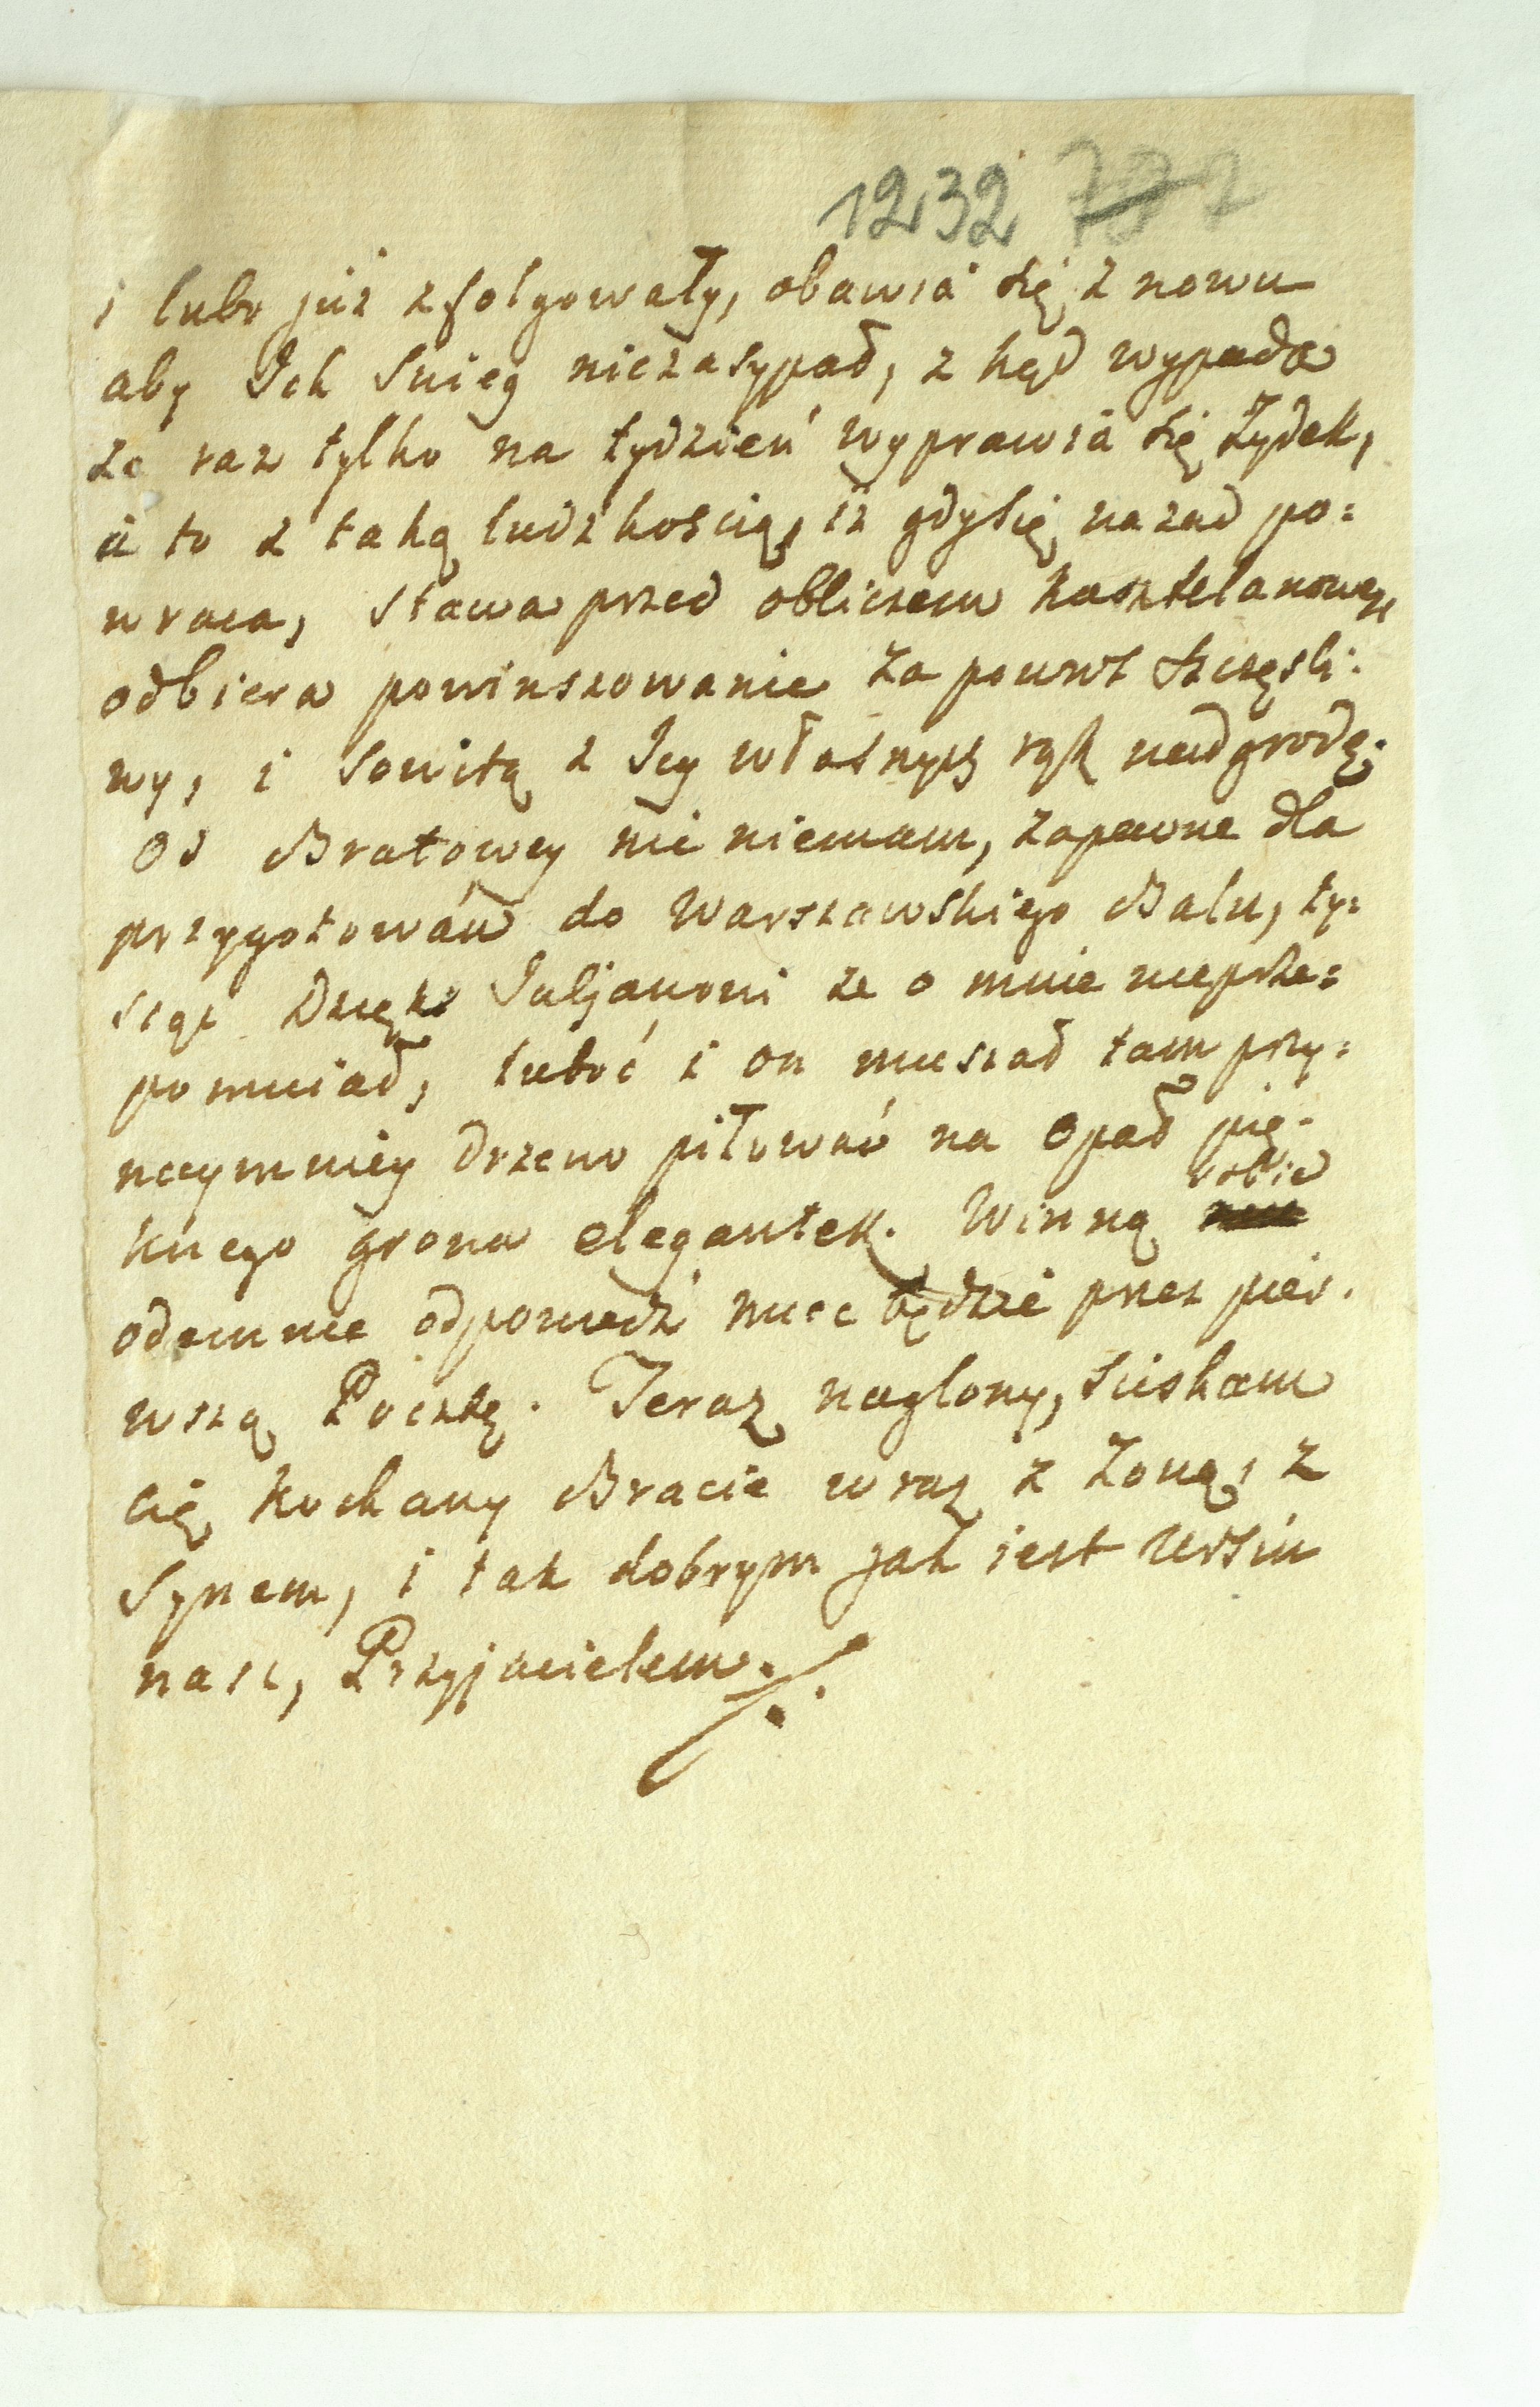 1232 722
i lubo już zfolgowały, obawia się z nowu
aby Ich Snieg niezasypał, z kąd wypada
że raz tylko na tydzień wyprawia się Żydek,
a to z taką ludzkoscią, iż gdysię nazad po=
wraca, stawa przed obliczem Kasztelanowey,
odbiera powinszowanie za powrot szczęsli=
wy, i sowitą z Jey własnych rąk nadgrodę.
Od Bratowey nic niemam, zapewne dla
przygotowań do Warszawskiego Balu, ty=
siąc Dzięki Juljanowi że o mnie nieprze=
pomniał, luboć i on musiał tam przy=
naymniey drzewo piłować na opał pię=
knego grona elegantek. Winną sobie
odemnie odpowiedź miec będzie przez pier=
wszą Pocztę. Teraz naglony, sciskam
cię kochany Bracie wraz z Żoną, z
Synem, i tak dobrym jak jest Ursin
nasz, Przyjacielem.